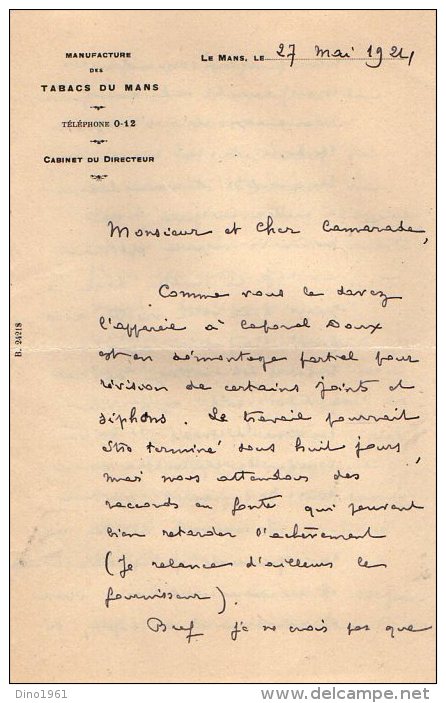 MANUFACTURE
DES
TABACS DU MANS
TÉLÉPHONE 0-12
CABINET DU DIRECTEUR
LE MANS, LE 27 Mai 1921
B. 24218
Monsieur et Cher Camarade,
Comme vous le savez
l'appareil à Caporal Doux
est en démontage partiel pour
révision de certains joints et
siphons. Le travail pourrait
être terminé sous huit jours,
mais nous attendons des
raccords en fonte qui peuvent
bien retarder l'achèvement
(Je relance d'ailleurs le
fournisseur).
Bref je ne crois pas que
Dino1961
delcampe.net